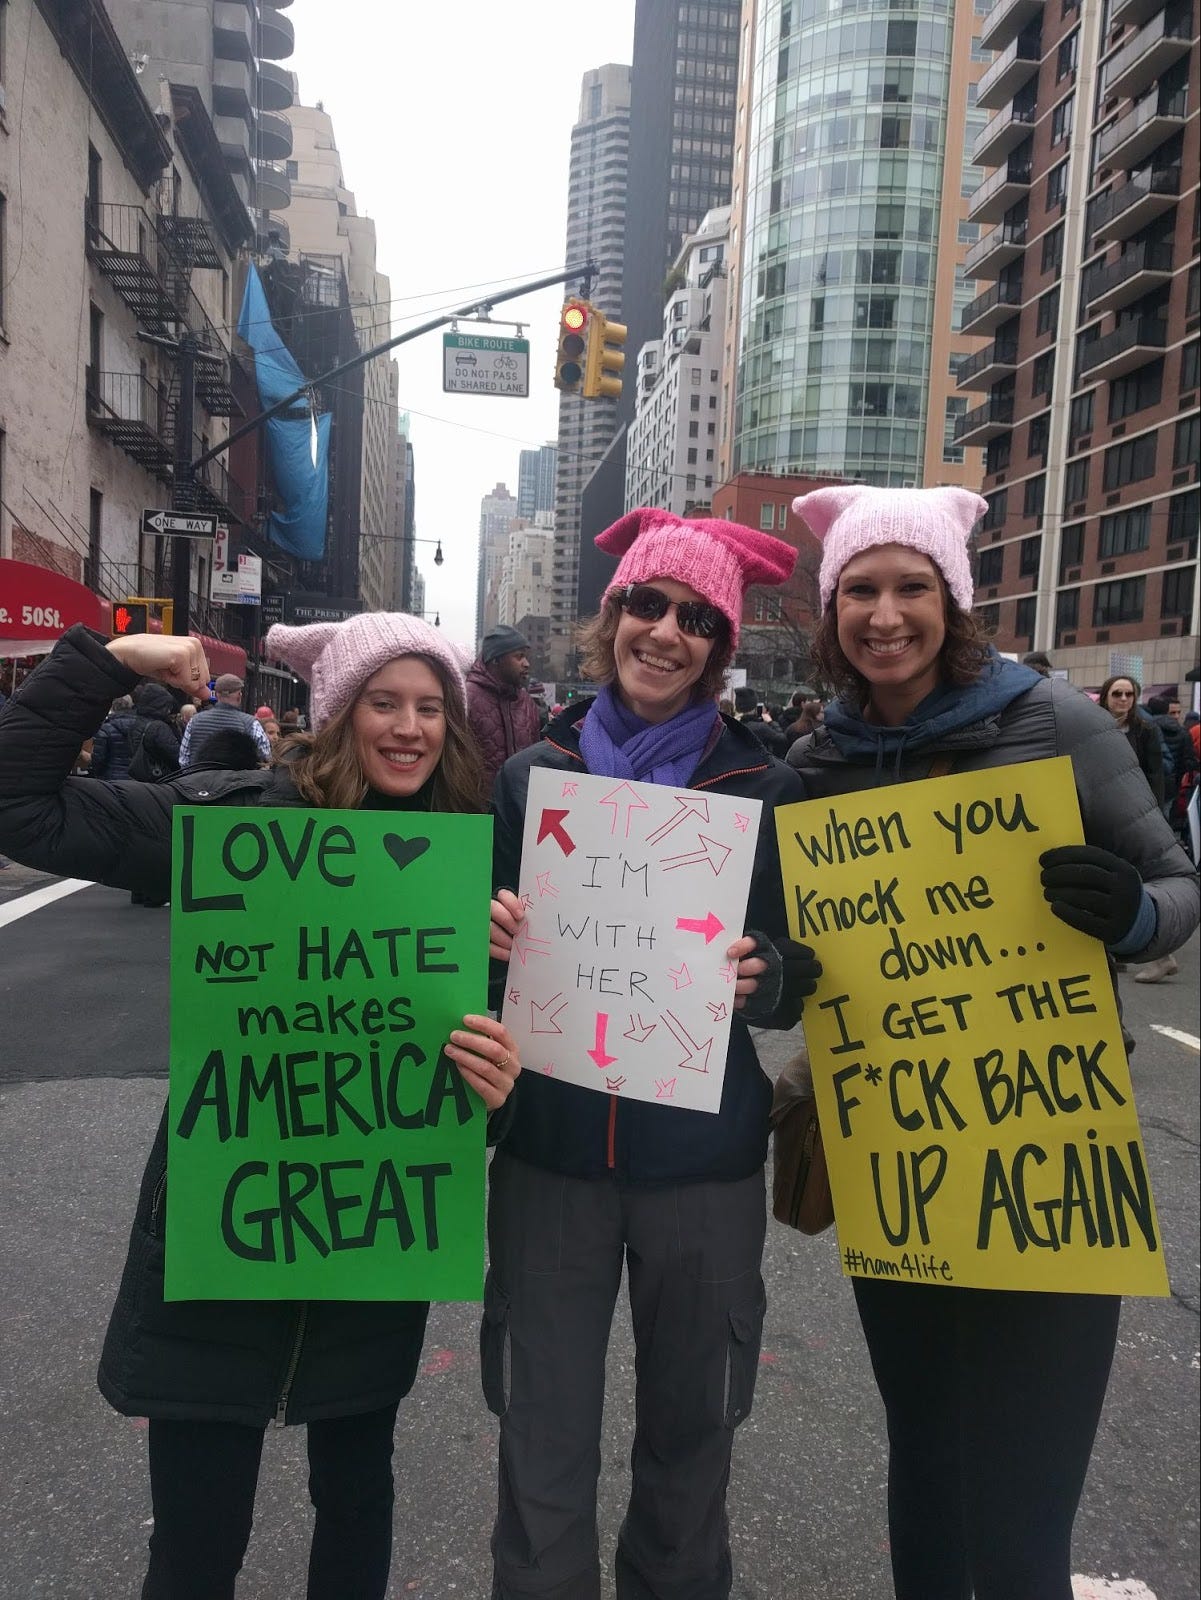 BIKE ROUTE
DO NOT PASS
IN SHARED LANE
ONE WAY
e. 50St.
THE PRESS BOX
LOVE ♥
NOT HATE
makes
AMERICA
GREAT
I'M
WITH
HER
When you
knock me
down...
I GET THE
F*CK BACK
UP AGAIN
#ham4life